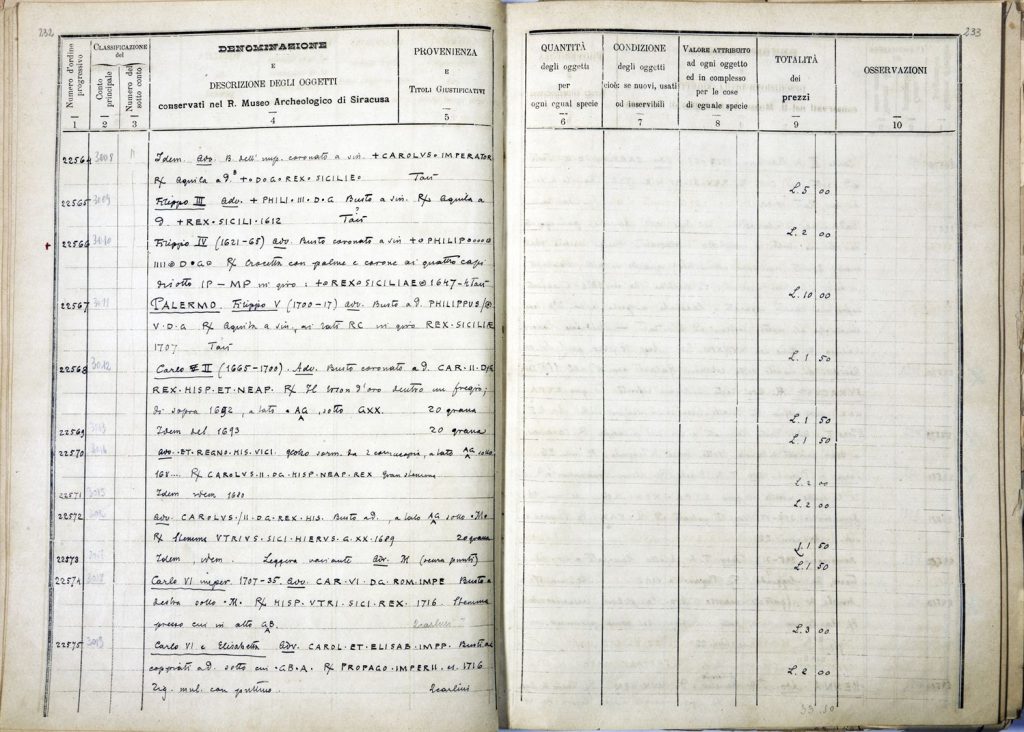 232
Numero d'ordine progressivo
CLASSIFICAZIONE del
Conto principale
Numero del sotto conto
DENOMINAZIONE
E
DESCRIZIONE DEGLI OGGETTI
conservati nel R. Museo Archeologico di Siracusa
PROVENIENZA
E
TITOLI GIUSTIFICATIVI
1 2 3 4 5
22564 3008 Idem. Adv. B. dell'imp. coronato a sin. +CAROLVS•IMPERATOR
R/ Aquila a d. +•D•G•REX•SICILIE• Tarì
22565 3009 Filippo III Adv. + PHILI•III•D•G Busto a sin. R/ Aquila a
d. +REX•SICILI•1612 Tarì
22566 3010 Filippo IV (1621-65) Adv. Busto coronato a sin +•PHILIP
IIII D•G• R/ Crocetta con palme e corone ai quattro capi
disotto IP-MP in giro: +•REX•SICILIAE 1647-4 Tarì
22567 3011 PALERMO. Filippo V (1700-17) adv. Busto a d. PHILIPPUS
V•D•G R/ Aquila a sin, ai lati RC in giro REX•SICILIÆ
1707 Tarì
22568 3012 Carlo II (1665-1700). Adv. Busto coronato a d. CAR•II•D•G
REX•HISP•ET•NEAP. R/ Il toson d'oro dentro un fregio;
di sopra 1692, a lato AG, sotto G.XX. 20 grana
22569 3013 Idem del 1693 20 grana
22570 3014 adv.•ET•REGNO•HIS.VICI. Globo sorm. da 2 cornucopie, a lato AG sotto
168.... R/ CAROLVS•II•DG•HISP•NEAP•REX Gran stemma
22571 3015 Idem idem 1680
22572 Adv. CAROLVS•/II•D•G•REX•HIS. Busto a d., a lato AG sotto •M•
R/ Stemma VTRIVS•SICI•HIERVS•G•XX•1689 20 grana
22573 Idem, idem. Leggera variante Adv. M (senza punti)
22574 3018 Carlo VI imper. 1707-35. Adv. CAR•VI•DG•ROM.IMPE Busto a
destra sotto •M• R/ HISP•VTRI•SICI•REX. 1716. Stemma
presso cui in alto GB. 2 carlini
22575 3019 Carlo VI e Elisabetta Adv. CAROL•ET•ELISAB•IMPP. Busti ac
coppiati a d. sotto cui •GB•A. R/ PROPAGO•IMPERII. es. 1716
Fig. mul. con puttino. 2 carlini
233
QUANTITÀ
degli oggetti
per
ogni egual specie
CONDIZIONE
degli oggetti
cioè: se nuovi, usati
od inservibili
VALORE ATTRIBUITO
ad ogni oggetto
ed in complesso
per le cose
di eguale specie
TOTALITÀ
dei
prezzi
OSSERVAZIONI
6 7 8 9 10
L. 5 00
L. 2 00
L. 10 00
L. 1 50
L. 1 50
L. 1 50
L. 2 00
L. 2 00
L. 1 50
L. 1 50
L. 3 00
L. 2 00
33.50